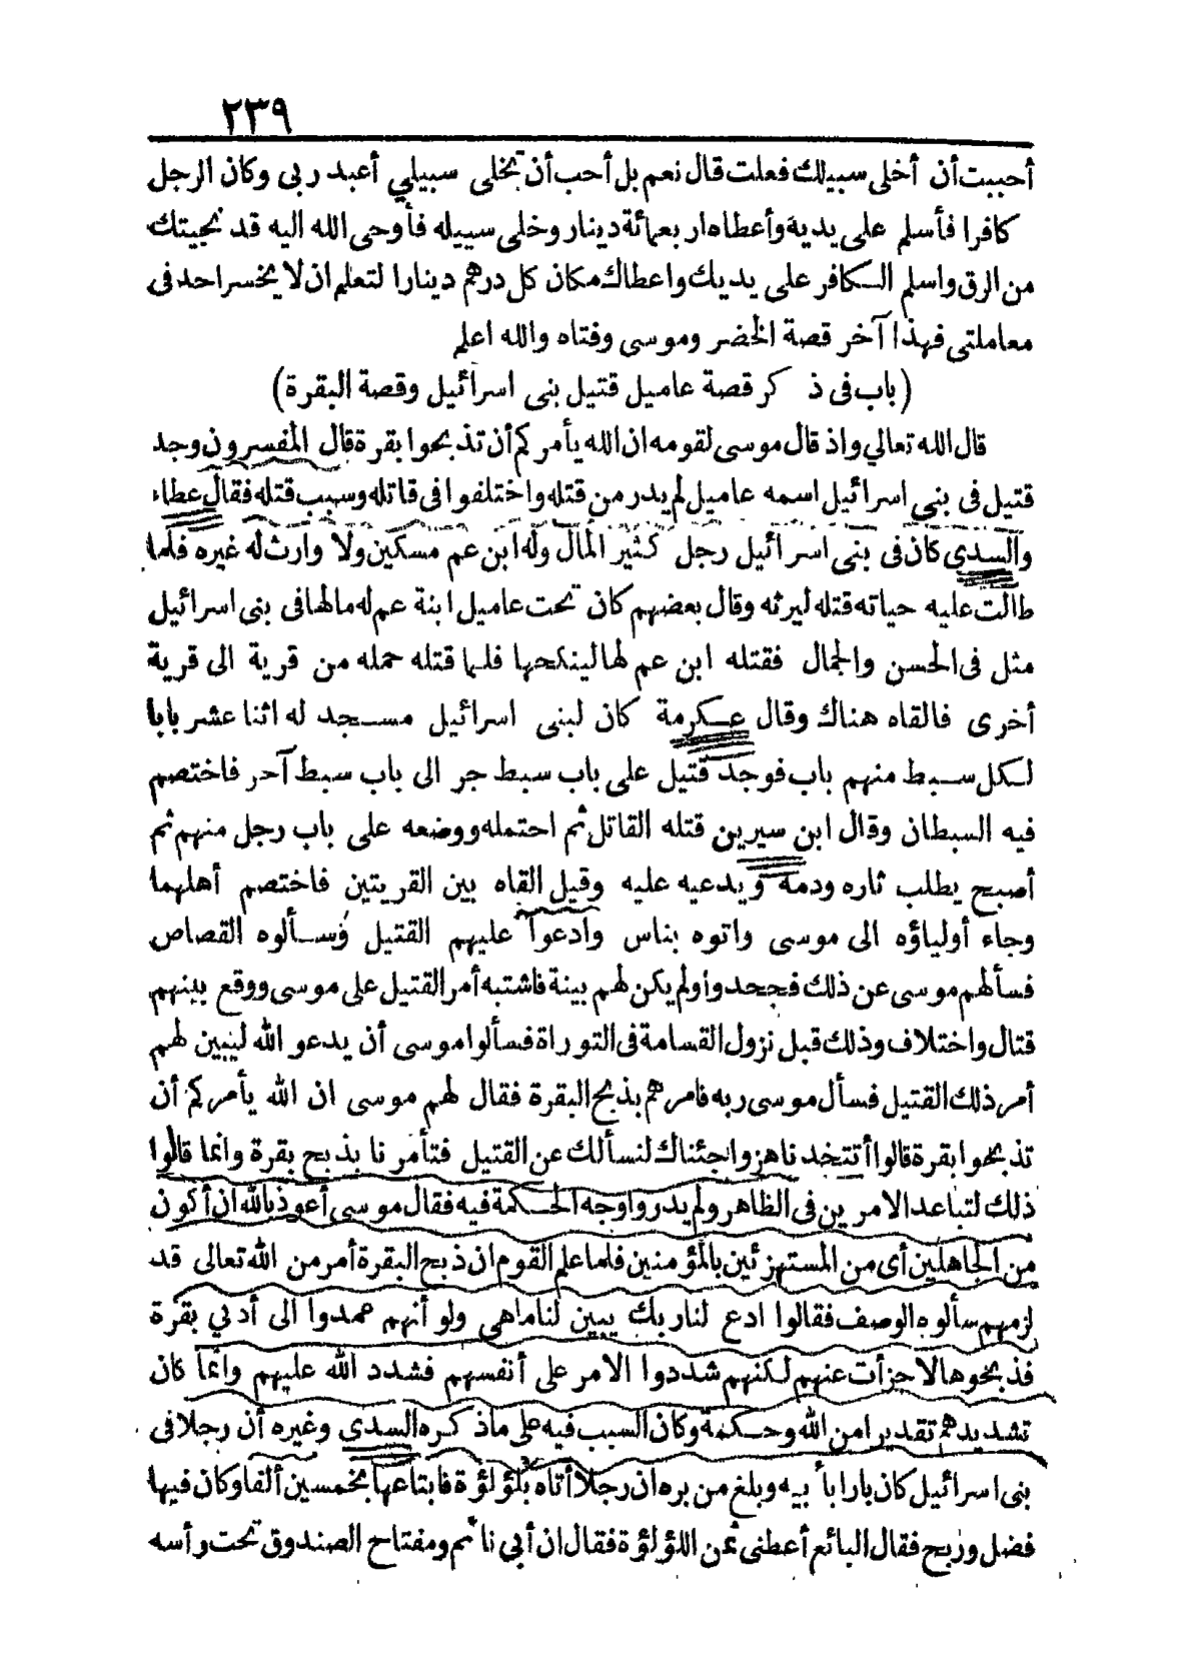 ٢٣٩
أحببت أن أخلى سبيلك فعلت قال نعم بل أحب أن تخلى سبيلي أعبد ربى وكان الرجل
كافرا فأسلم على يديه وأعطاه اربعمائة دينار وخلى سبيله فأوحى الله اليه قد نجيتك
من الرق واسلم الكافر على يديك واعطاك مكان كل درهم دينارا لتعلم ان لا يخسر احد فى
معاملتى فهذا آخر قصة الخضر وموسى وفتاه والله اعلم
(باب فى ذكر قصة عاميل قتيل بنى اسرائيل وقصة البقرة)
قال الله تعالي واذ قال موسى لقومه ان الله يأمركم أن تذبحوا بقرة قال المفسرون وجد
قتيل فى بنى اسرائيل اسمه عاميل لم يدر من قتله واختلفوا فى قاتله وسبب قتله فقال عطاء
والسدى كان فى بنى اسرائيل رجل كثير المال وله ابن عم مسكين ولا وارث له غيره فلما
طالت عليه حياته قتله ليرثه وقال بعضهم كان تحت عاميل ابنة عم له مالها فى بنى اسرائيل
مثل فى الحسن والجمال فقتله ابن عم لها لينكحها فلما قتله حمله من قرية الى قرية
أخرى فالقاه هناك وقال عكرمة كان لبنى اسرائيل مسجد له اثنا عشر بابا
لكل سبط منهم باب فوجد قتيل على باب سبط جر الى باب سبط آخر فاختصم
فيه السبطان وقال ابن سيرين قتله القاتل ثم احتمله ووضعه على باب رجل منهم ثم
أصبح يطلب ثاره ودمه ويدعيه عليه وقيل القاه بين القريتين فاختصم أهلهما
وجاء أولياؤه الى موسى واتوه بناس وادعوا عليهم القتيل وسألوه القصاص
فسألهم موسى عن ذلك فجحدوا ولم يكن لهم بينة فاشتبه أمر القتيل على موسى ووقع بينهم
قتال واختلاف وذلك قبل نزول القسامة فى التوراة فسألوا موسى أن يدعو الله ليبين لهم
أمر ذلك القتيل فسأل موسى ربه فامرهم بذبح البقرة فقال لهم موسى ان الله يأمركم أن
تذبحوا بقرة قالوا أتتخذنا هزوا جئناك لنسألك عن القتيل فتأمرنا بذبح بقرة وانما قالوا
ذلك لتباعد الامرين فى الظاهر ولم يدروا وجه الحكمة فيه فقال موسى أعوذ بالله ان أكون
من الجاهلين أى من المستهزئين بالمؤمنين فلما علم القوم ان ذبح البقرة أمر من الله تعالى قد
لزمهم سألوه الوصف فقالوا ادع لنا ربك يبين لنا ماهى ولو أنهم عمدوا الى أدني بقرة
فذبحوها لاجزأت عنهم لكنهم شددوا الامر على أنفسهم فشدد الله عليهم وانما كان
تشديدهم تقديرا من الله وحكمة وكان السبب فيه على ماذكره السدى وغيره أن رجلا فى
بنى اسرائيل كان بارا بأبيه وبلغ من بره ان رجلا أتاه بلؤلؤة فابتاعها بخمسين ألفا وكان فيها
فضل وربح فقال البائع أعطنى ثمن اللؤلؤة فقال ان أبي نائم ومفتاح الصندوق تحت رأسه